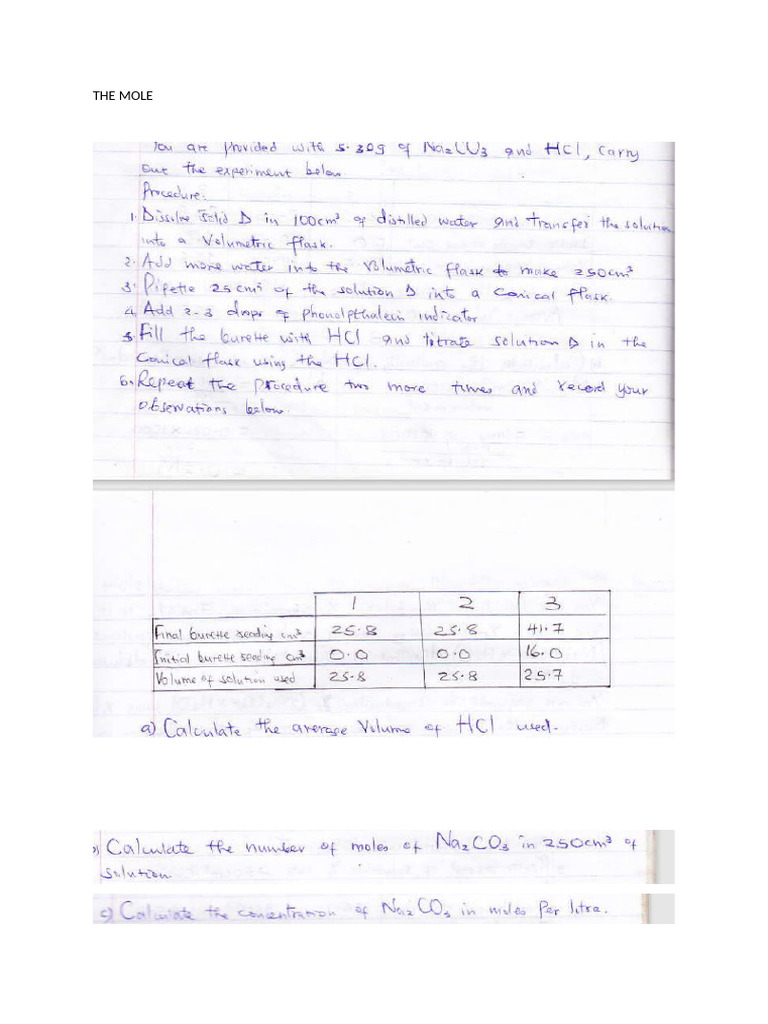 THE MOLE
You are provided with 5.30g of Na2CO3 and HCl, Carry
out the experiment below.
Procedure:
1. Dissolve solid D in 100cm³ of distilled water and transfer the solution
into a Volumetric flask.
2. Add more water into the volumetric flask to make 250cm³
3. Pipette 25cm³ of the solution D into a Conical flask.
4. Add 2-3 drops of phenolpthalein indicator
5. Fill the burette with HCl and titrate solution D in the
Conical flask using the HCl.
6. Repeat the procedure two more times and record your
observations below.
1 2 3
Final burette reading cm³ 25.8 25.8 41.7
Initial burette reading cm³ 0.0 0.0 16.0
Volume of solution used 25.8 25.8 25.7
a) Calculate the average Volume of HCl used.
b) Calculate the number of moles of Na2CO3 in 250cm³ of
solution
c) Calculate the concentration of Na2CO3 in moles per litre.